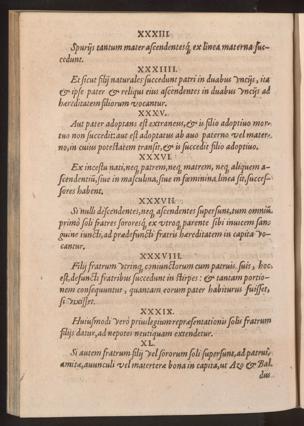 XXXIII.
Spurijs tantum mater ascendentesq́; ex linea materna suc-
cedunt.
XXXIIII.
Et sicut filij naturales succedunt patri in duabus vncijs, ita
& ipse pater & reliqui eius ascendentes in duabus vncijs ad
hæreditatem filiorum vocantur.
XXXV.
Aut pater adoptans est extraneus, & is filio adoptiuo mor-
tuo non succedit: aut est adoptatus ab auo paterno vel mater-
no, in cuius potestatem transit, & is succedit filio adoptiuo.
XXXVI.
Ex incestu nati, neq́; patrem, neq́; matrem, neq́; aliquem a-
scendentiũ, siue in masculina, siue in fœminina linea sit, succes-
sores habent.
XXXVII.
Si nulli descendentes, neq́; ascendentes supersunt, tum omniũ
primò soli fratres sororesq́; ex vtroq́; parente sibi inuicem san-
guine iuncti, ad prædefuncti fratris hæreditatem in capita vo-
cantur.
XXXVIII.
Filij fratrum vtrinq́; coniunctorum cum patruis suis, hoc
est, defuncti fratribus succedunt in stirpes: & tantam portio-
nem consequuntur, quantam eorum pater habiturus fuisset,
si vixisset.
XXXIX.
Huiusmodi verò priuilegium repræsentationis solis fratrum
filijs datur, ad nepotes neutiquam extendetur.
XL.
Si autem fratrum filij vel sororum soli supersunt, ad patrui,
amitæ, auunculi vel materteræ bona in capita, ut Az. & Bal.
dus